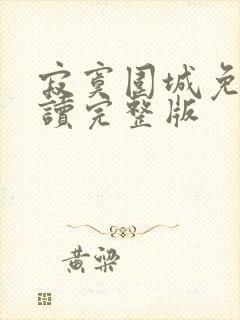 寂寞圍城免
讀完整版
黄梁